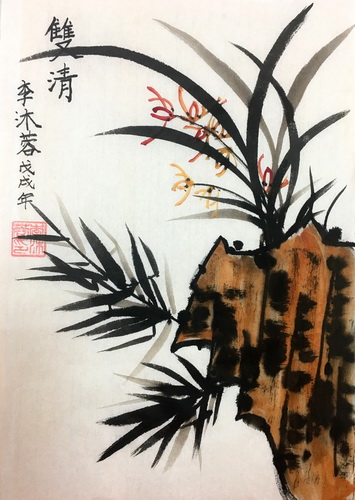 雙清
李沐蓉戊戌年